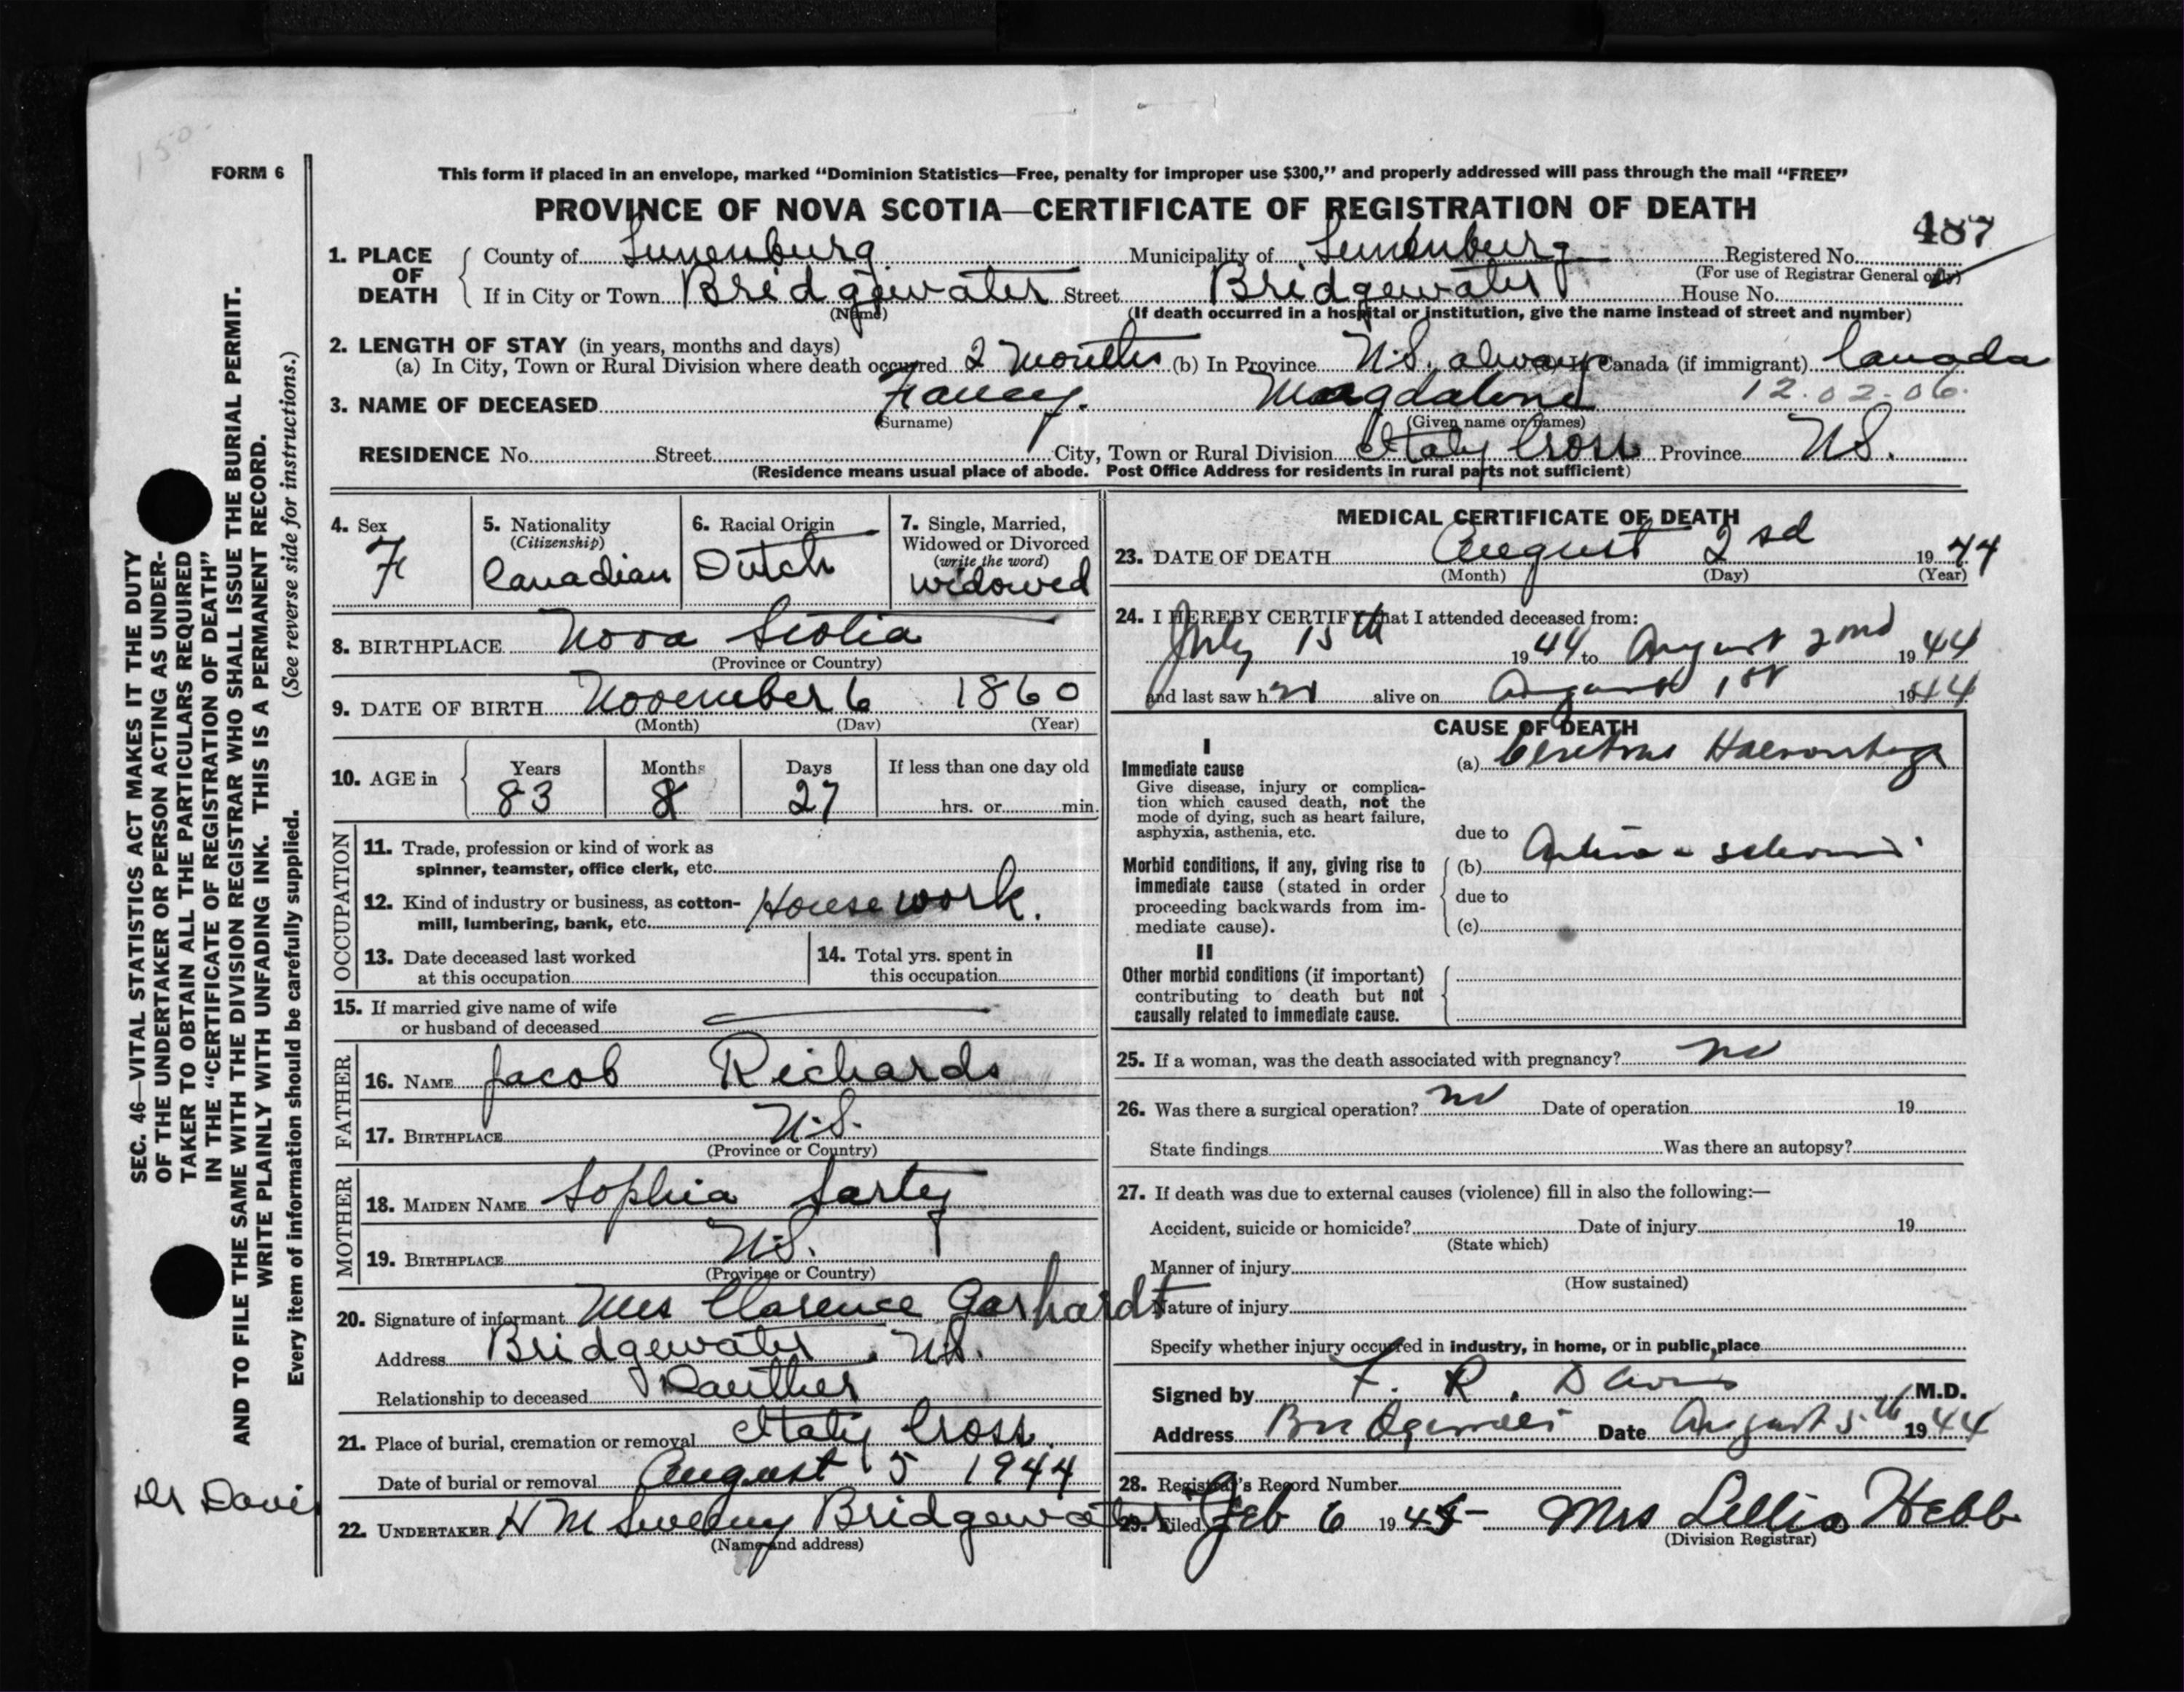 150
FORM 6
This form if placed in an envelope, marked “Dominion Statistics—Free, penalty for improper use $300,” and properly addressed will pass through the mail “FREE”
PROVINCE OF NOVA SCOTIA—CERTIFICATE OF REGISTRATION OF DEATH
487
1. PLACE OF DEATH County of Lunenburg Municipality of Lunenburg Registered No.
(For use of Registrar General only)
If in City or Town Bridgewater Street Bridgewater House No.
(Name) (If death occurred in a hospital or institution, give the name instead of street and number)
2. LENGTH OF STAY (in years, months and days)
(a) In City, Town or Rural Division where death occurred 2 Months (b) In Province N.S. always In Canada (if immigrant) Canada
3. NAME OF DECEASED Francy. Magdalene 12.02.06.
(Surname) (Given name or names)
RESIDENCE No. Street City, Town or Rural Division Italy Cross Province N.S.
(Residence means usual place of abode. Post Office Address for residents in rural parts not sufficient)
4. Sex F
5. Nationality (Citizenship) Canadian
6. Racial Origin Dutch
7. Single, Married, Widowed or Divorced (write the word) widowed
8. BIRTHPLACE Nova Scotia
(Province or Country)
9. DATE OF BIRTH November 6 1860
(Month) (Day) (Year)
10. AGE in Years Months Days If less than one day old
83 8 27 hrs. or min.
OCCUPATION
11. Trade, profession or kind of work as
spinner, teamster, office clerk, etc.
12. Kind of industry or business, as cotton-
mill, lumbering, bank, etc. House work.
13. Date deceased last worked
at this occupation
14. Total yrs. spent in
this occupation
15. If married give name of wife
or husband of deceased
FATHER
16. NAME Jacob Richards
17. BIRTHPLACE N.S.
(Province or Country)
MOTHER
18. MAIDEN NAME Sophia Sarty
19. BIRTHPLACE N.S.
(Province or Country)
20. Signature of informant Mrs Clarence Garhardt
Address Bridgewater, N.S.
Relationship to deceased Dauther
21. Place of burial, cremation or removal Italy Cross.
Date of burial or removal August 5 1944
22. UNDERTAKER H M Sweeny Bridgewater
(Name and address)
MEDICAL CERTIFICATE OF DEATH
23. DATE OF DEATH August 2sd 1944
(Month) (Day) (Year)
24. I HEREBY CERTIFY that I attended deceased from:
July 15th 1944 to August 2nd 1944
and last saw her alive on August 1st 1944
CAUSE OF DEATH
I
Immediate cause (a) Haemorrhage
Give disease, injury or complica-
tion which caused death, not the
mode of dying, such as heart failure,
asphyxia, asthenia, etc.
due to
Morbid conditions, if any, giving rise to (b) Arterio-sclerosis
immediate cause (stated in order due to
proceeding backwards from im-
mediate cause). (c)
II
Other morbid conditions (if important)
contributing to death but not
causally related to immediate cause.
25. If a woman, was the death associated with pregnancy? no
26. Was there a surgical operation? no Date of operation 19
State findings Was there an autopsy?
27. If death was due to external causes (violence) fill in also the following:—
Accident, suicide or homicide? Date of injury 19
(State which)
Manner of injury
(How sustained)
Nature of injury
Specify whether injury occurred in industry, in home, or in public place
Signed by F. R. Davis M.D.
Address Bridgewater Date August 5th 1944
28. Registrar's Record Number
29. Filed Feb 6 1945 Mrs Lellia Hebb
(Division Registrar)
SEC. 46—VITAL STATISTICS ACT MAKES IT THE DUTY
OF THE UNDERTAKER OR PERSON ACTING AS UNDER-
TAKER TO OBTAIN ALL THE PARTICULARS REQUIRED
IN THE “CERTIFICATE OF REGISTRATION OF DEATH”
AND TO FILE THE SAME WITH THE DIVISION REGISTRAR WHO SHALL ISSUE THE BURIAL PERMIT.
WRITE PLAINLY WITH UNFADING INK. THIS IS A PERMANENT RECORD.
Every item of information should be carefully supplied. (See reverse side for instructions.)
Dr Davis